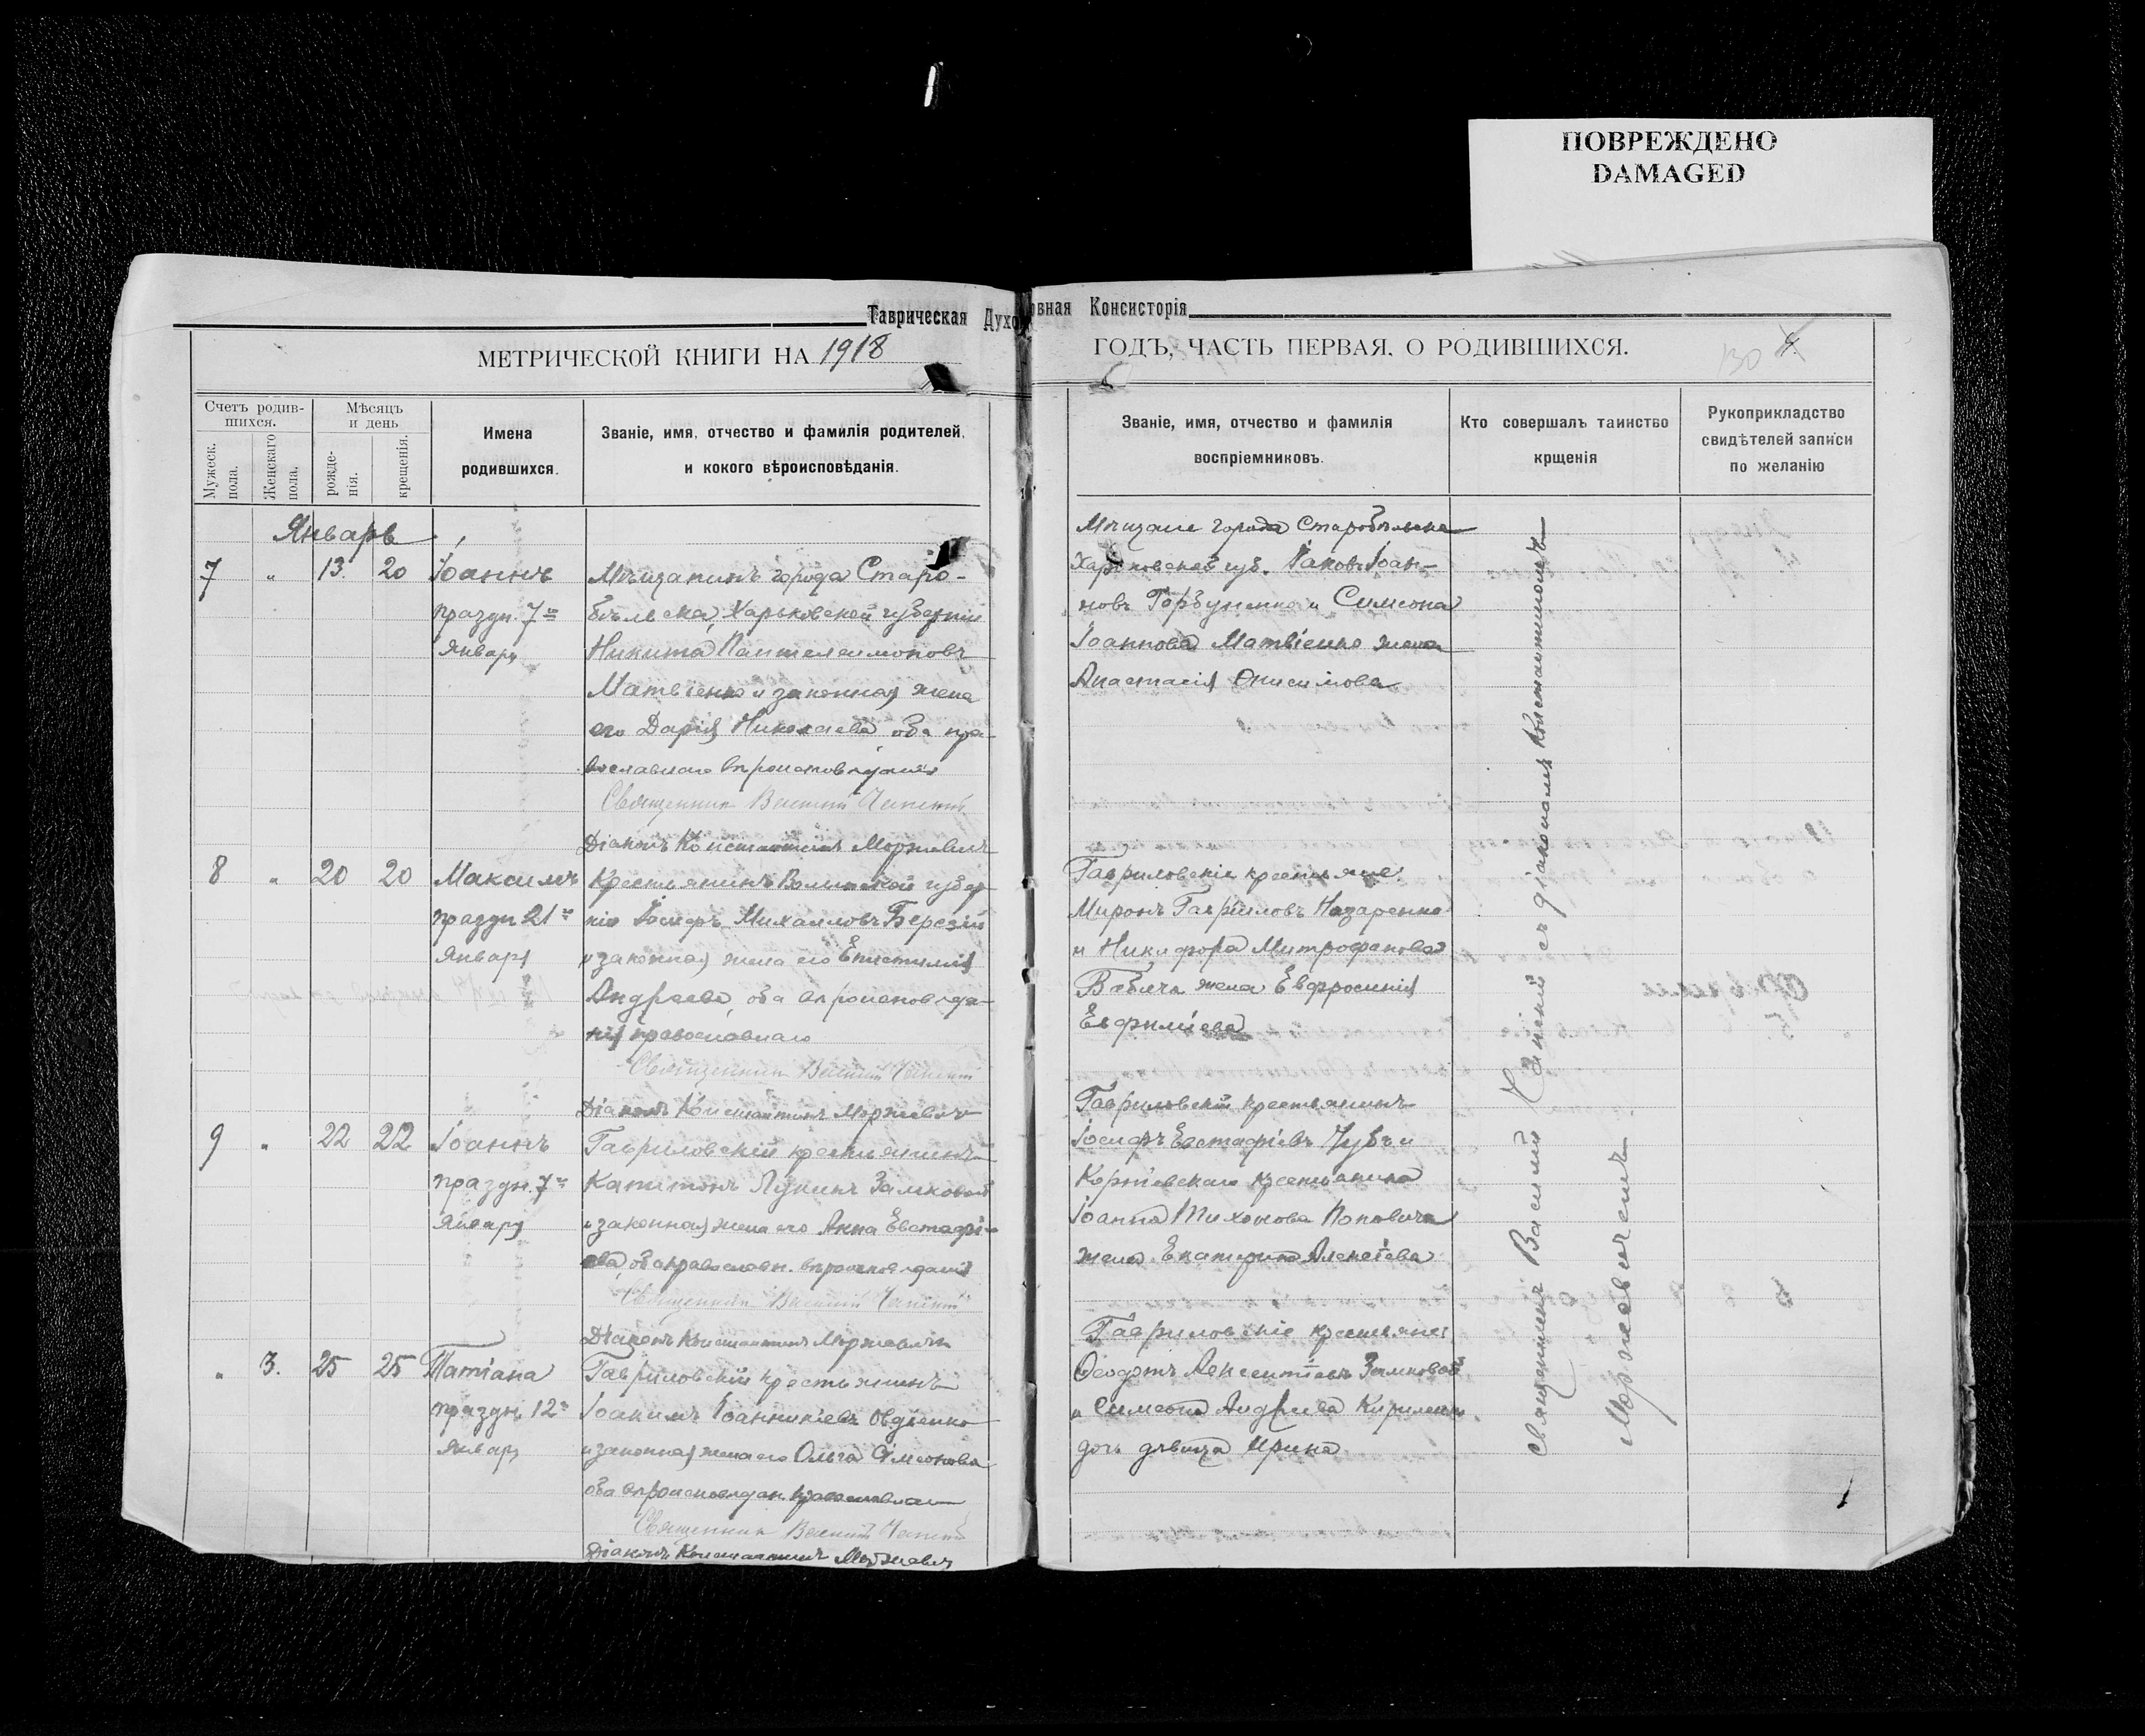 ПОВРЕЖДЕНО
DAMAGED
Таврическая Духовная Консисторія
МЕТРИЧЕСКОЙ КНИГИ НА 1918
ГОДЪ, ЧАСТЬ ПЕРВАЯ, О РОДИВШИХСЯ.
130
Счетъ родив-
шихся.
Мужеск.
пола.
Женскаго
пола.
Мѣсяцъ
и день
рожде-
нія.
крещенія.
Имена
родившихся.
Званіе, имя, отчество и фамилія родителей,
и кокого вѣроисповѣданія.
Званіе, имя, отчество и фамилія
воспріемниковъ.
Кто совершалъ таинство
крщенія
Рукоприкладство
свидѣтелей записи
по желанію
Январь
7 " 13. 20 Іоаннъ
праздн. 7го
Января
Мѣщанинъ города Старо-
бѣльска, Харьковской губерніи
Никита Пантелеимоновъ
Матвіенко и законная жена
его Дарія Николаева, оба пра-
вославнаго вѣроисповѣданія
Священникъ Василій
Діаконъ Константинъ Моржевичъ
Мѣщане города Старобѣльска
Харьковской губ. Іаковъ Іоан-
новъ Горбуненко и Симеона
Іоаннова Матвіенко жена
Анастасія Онисимова
8 " 20 20 Максимъ
праздн 21го
Января
Крестьянинъ Волынской губер
ніи Іосифъ Михаиловъ Березій
и законная жена его Епистимія
Андреева, оба вѣроисповѣда-
нія православнаго
Священникъ Василій
Діаконъ Константинъ Моржевичъ
Гавриловскіе крестьяне:
Миронъ Гавріиловъ Назаренко
и Никифора Митрофанова
Бабича жена Евфросинія
Евфиміева
9 " 22 22 Іоаннъ
праздн. 7го
Января
Гавриловскій крестьянинъ
Капитонъ Лукинъ Замковой
и законная жена его Анна Евстафі-
ева, оба православн. вѣроисповѣданія
Священникъ Василій
Діаконъ Константинъ Моржевичъ
Гавриловскій крестьянинъ
Іосифъ Евстафіевъ Чубъ и
крестьянина
Іоанна Тихонова Поповича
жена Екатерина Алексіева
" 3. 25 25 Татіана
праздн. 12го
Января
Гавриловскій крестьянинъ
Іоакимъ Іоанникіевъ Овдіенко
и законная жена его Ольга Симеонова
оба вѣроисповѣдан. православнаго
Священникъ Василій
Діаконъ Константинъ Моржевичъ
Гавриловскіе крестьяне:
Феодотъ Авксентіевъ Замковой
и Симеона Андреева Кириленко
дочь дѣвица Ирина
Священникъ Василій съ діакономъ Константиномъ
Моржевичемъ.